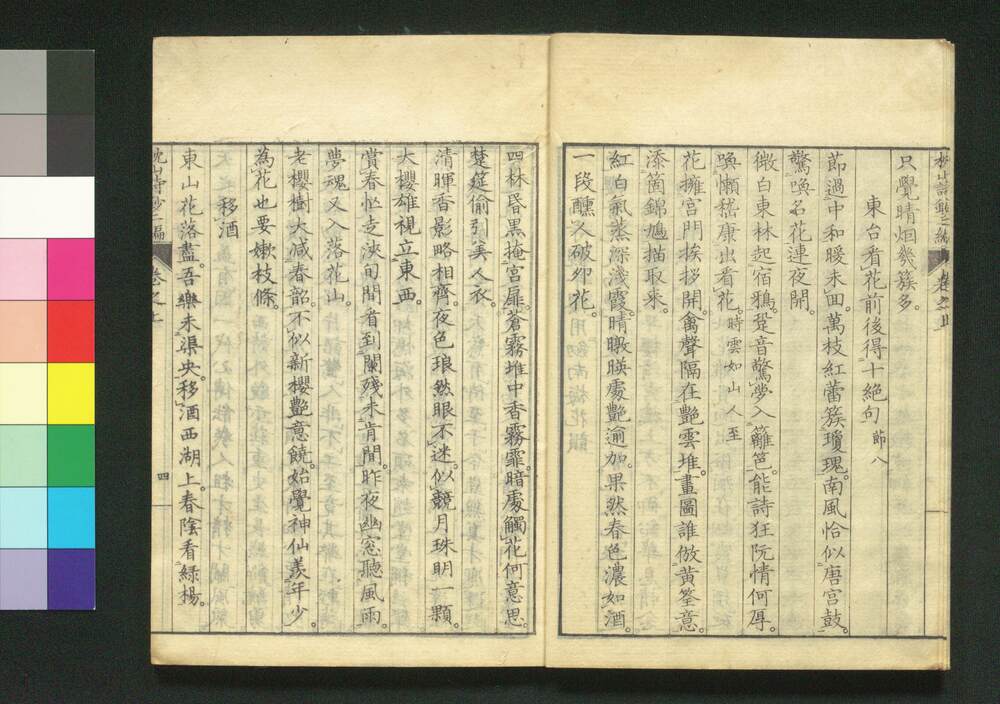 枕山詩鈔二編 卷之上
只覺晴烟幾簇多。
東台看花前後得十絶句 節八
節過中和暖未回。萬枝紅蕾簇瓊瑰。南風恰似唐宮鼓。
驚喚名花連夜開。
微白東林起宿鴉。跫音驚夢入籬笆。能詩狂阮情何厚。
喚懶嵇康出看花。時雲如山人至
花擁宮門挨拶開。禽聲隔在艷雲堆。畫圖誰倣黄筌意。
添箇錦鳩描取來。
紅白氣蒸深淺霞。晴暾暎處艷逾加。果然春色濃如酒。
一段醺人破卯花。用劍南梅花韻
四林昏黒掩宮扉。蒼霧堆中香霧霏。暗處觸花何意思。
楚筵偷引美人衣。
清暉香影略相齊。夜色琅然眼不迷。似競月珠明一顆。
大櫻雄視立東西。
賞春忙走浹旬間。看到闌殘未肯閒。昨夜幽窓聽風雨。
夢魂又入落花山。
老櫻樹大減春韶。不似新櫻艷意饒。始覺神仙羨年少。
為花也要嫩枝條。
移酒
東山花落盡。吾樂未渠央。移酒西湖上。春陰看緑楊。
枕山詩鈔二編 卷之上 四